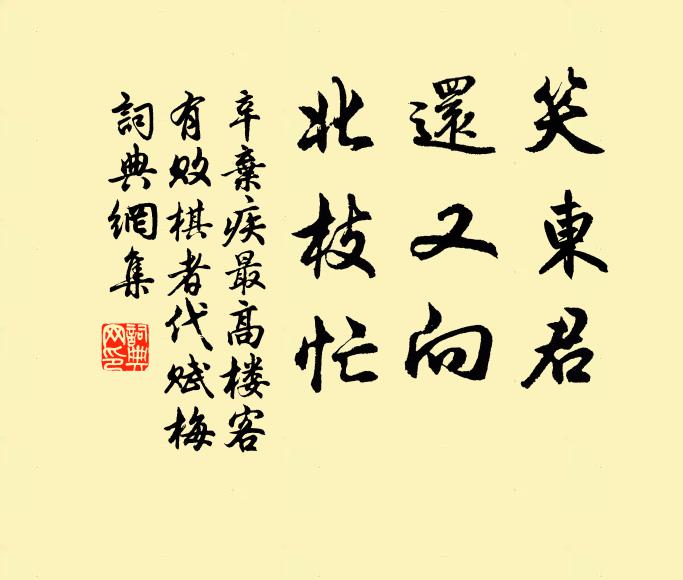 笑東君
還又向
北枝忙
辛棄疾最高楼客
有敗棋者代赋梅
詞典網集
詞典網印